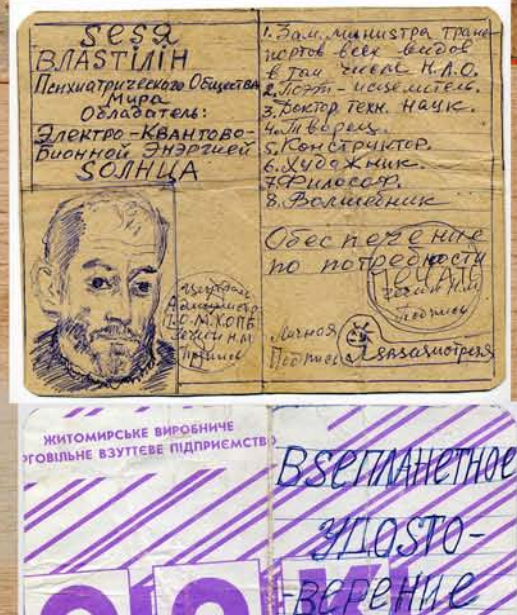 SeSя
ВЛАSТIЛIН
Психиатрического Общества
Мира
Обладатель:
Электро-Квантово-
Бионной Энэргией
SОЛНЦА
1. Зам. министра транс-
портов всех видов
в том числе Н.Л.О.
2. Поэт-исцелитель.
3. Доктор техн. наук.
4. Творец.
5. Конструктор.
6. Художник.
7. Философ.
8. Волшебник
Обеспечение
по потребности
ПЕЧАТЬ
подпись
Личная
Подпись
ЖИТОМИРСЬКЕ ВИРОБНИЧЕ
РГОВІЛЬНЕ ВЗУТТЄВЕ ПІДПРИЄМСТВО
ВSеПЛАНЕТНОЕ
УДОSТО-
-ВЕРЕНИЕ